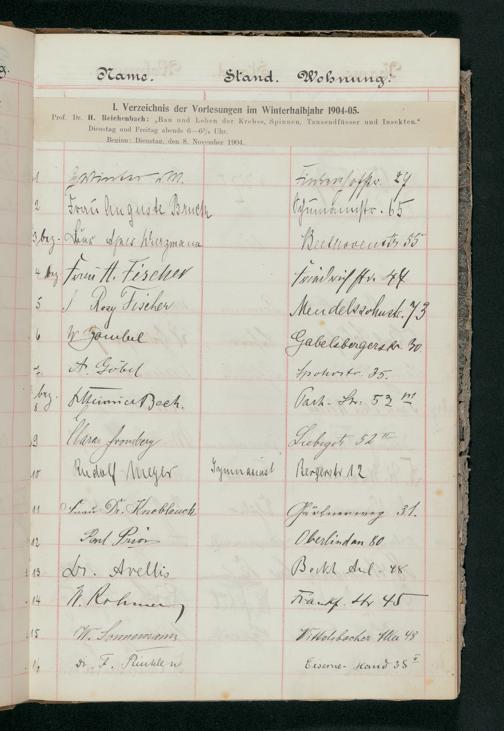 Name. Stand. Wohnung.
I. Verzeichnis der Vorlesungen im Winterhalbjahr 1904-05.
Prof. Dr. H. Reichenbach: „Bau und Leben der Krebse, Spinnen, Tausendfüsser und Insekten."
Dienstag und Freitag abends 6—6¾ Uhr.
Beginn: Dienstag, den 8. November 1904.
1 27
2 Frau Auguste Bruch Schumannstr. 65
3 bez. Beethovenstr 55
4 bez Frau H. Fischer Friedrichstr. 44
5 Rosy Fischer Mendelssohnstr. 73
6 W. Gombel Gabelsbergerstr 30
7 A. Göbel Spohrstr. 35.
8 bez. Bech. Park-Str. 52 III
9 Clara Fromberg Liebigstr 52
10 Rudolf Meyer Gymnasiast Bergerstr 12
11 Frau Dr. Knoblauch Gärtnerweg 31.
12 Paul Prior Oberlindau 80
13 Dr. Avellis Bockh. Anl. 48
14 W. Rohmer Frankf. Str 45
15 W. Sonnemann Wittelsbacher Allee 48
16 Dr. F. Eiserne Hand 35 I